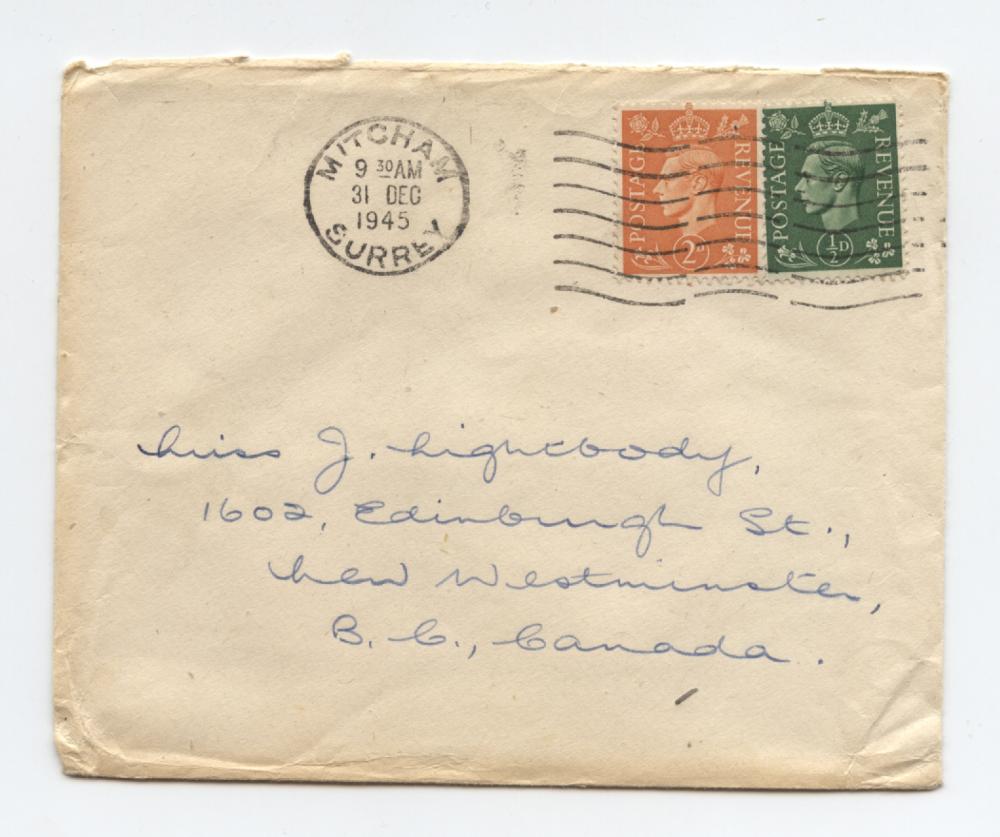 MITCHAM
9 30AM
31 DEC
1945
SURREY
POSTAGE REVENUE
2D
POSTAGE REVENUE
½D
Miss J. Lightbody,
1602, Edinburgh St.,
New Westminster,
B. C., Canada.